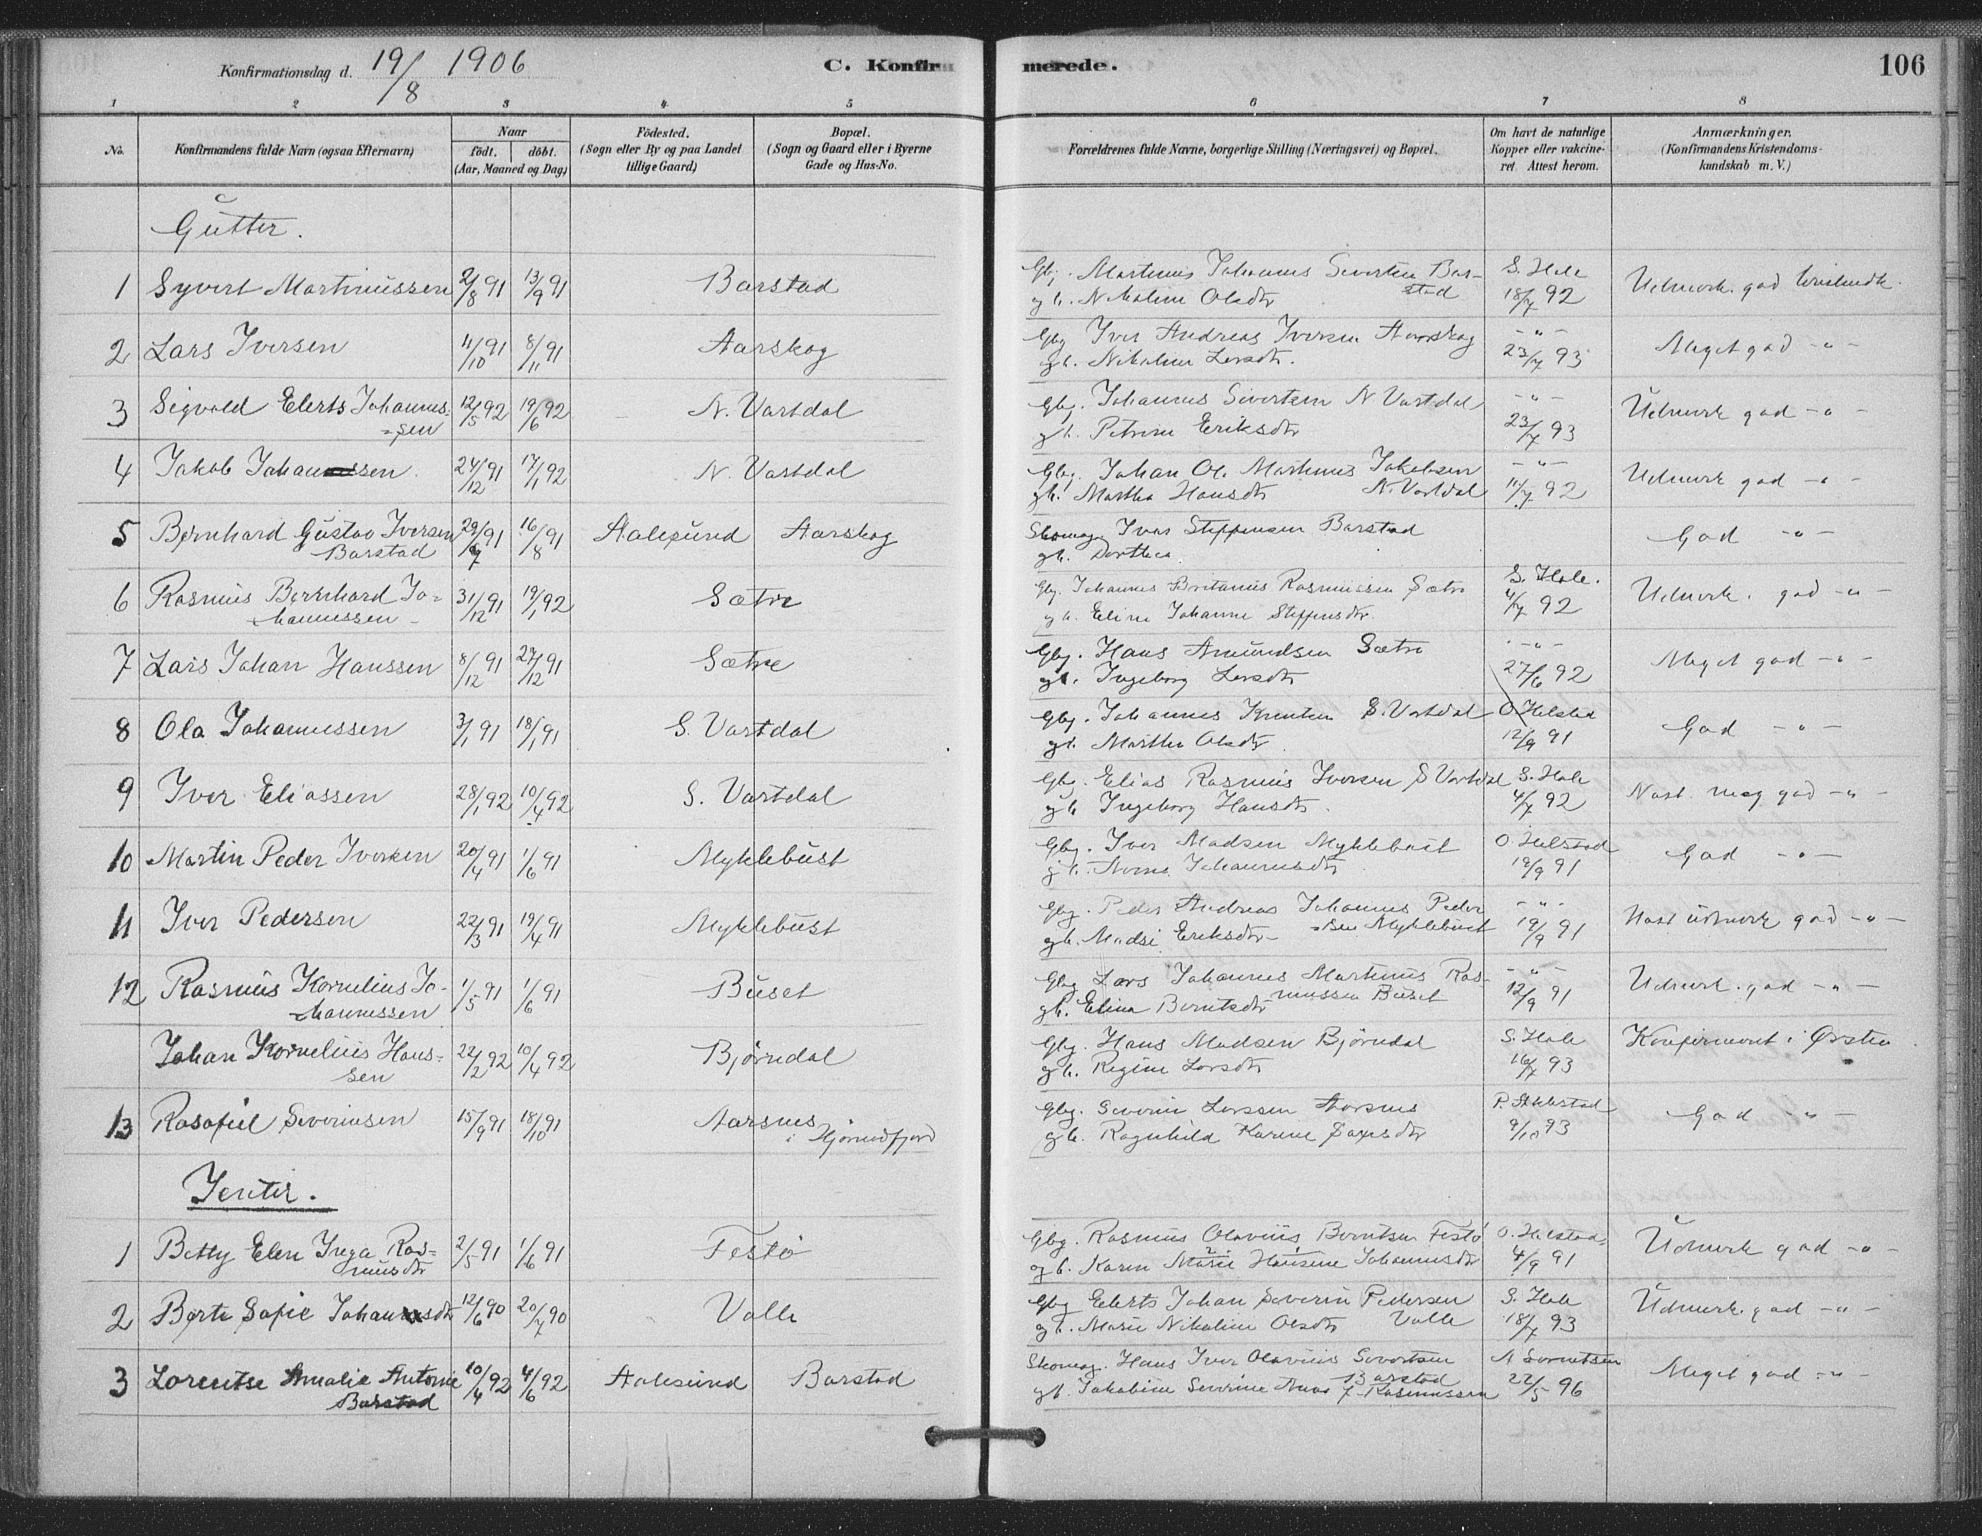 Konfirmationsdag d. 19/8 1906 C. Konfirmerede. 106
1 2 3 4 5 6 7 8
No. Konfirmandens fulde Navn (ogsaa Efternavn) Naar födt. döbt. (Aar, Maaned og Dag) Födested. (Sogn eller By og paa Landet tillige Gaard) Bopæl. (Sogn og Gaard eller i Byerne Gade og Hus-No. Forældrenes fulde Navne, borgerlige Stilling (Næringsvei) og Bopæl. Om havt de naturlige Kopper eller vakcineret. Attest herom. Anmærkninger. (Konfirmandens Kristendomskundskab m. V.)
Gutter.
1 Syvert Martinussen 2/8 91 13/9 91 Barstad Gbj. Martinus Johannes Sivertsen Bar- S. Hole Udmerk. god kristendk.
stad
gh. Nikoline Olsdtr 18/7 92
2 Lars Iversen 11/10 91 8/11 91 Aarskog Gbj Iver Andreas Iversen Aarskog - " - Meget god - " -
gh. Nikoline Larsdtr. 23/7 93
3 Sigvald Elerts Johannes- 12/5 92 19/6 92 N. Vartdal Gbj. Johannes Sivertsen N Vartdal - " - Udmerk god - " -
=sen gh. Petrine Eriksdtr 23/7 93
4 Jakob Johansen. 24/12 91 17/1 92 N. Vartdal Gbj. Johan Ol. Martinus Jakobsen - " - Udmerk god - " -
gh. Martha Hansdtr N. Vartdal 11/7 92
5 Bernhard Gustav Iversen 29/7 91 16/8 91 Aalesund Aarskog Skomag. Ivar Steffensen Barstad God - " -
Barstad gh. Dorthea
6 Rasmus Bernhard Jo- 31/12 91 19/1 92 Sætre Gbj. Johannes Britanus Rasmussen Sætre S. Hole. Udmerk. god - " -
hannessen - gh. Eline Johanne Steffensdtr. 4/7 92
7 Lars Johan Hanssen 8/12 91 27/12 91 Sætre Gbj. Hans Amundsen Sætre - " - Meget god - " -
gh. Ingeborg Larsdtr 27/6 92
8 Ola Johannessen 3/1 91 18/1 91 S. Vartdal Gbj. Johannes Knutsen S. Vartdal O. Helstad God - " -
gh. Martha Olsdtr. 12/9 91
9 Iver Eliassen 28/1 92 10/4 92 S. Vartdal Gbj. Elias Rasmus Iversen S Vartdal S. Hole Nast. meg god - " -
gh Ingeborg Hansdtr. 4/7 92
10 Martin Peder Iversen 20/4 91 1/6 91 Myklebust Gbj. Iver Madsen Myklebust O. Helstad God - " -
gh. Johannesdtr 12/9 91
11 Iver Pedersen 22/3 91 19/4 91 Myklebust Gbj. Peder Andreas Johannes Peder - " - Nast udmerk god - " -
gh. Madsi Eriksdtr - sen Myklebust 12/9 91
12 Rasmus Kornelius Jo- 1/5 91 1/6 91 Buset Gbj Lars Johannes Martinus Ras- - " - Udmerk. god - " -
hannessen gh. Elina Berntsdtr mussen Buset 12/9 91
Johan Kornelius Hans- 22/2 92 10/4 92 Bjørndal Gbj. Hans Madsen Bjørndal S. Hole Konfirmert i Ørsten.
sen gh. Regine Larsdtr 16/7 93
13 Rasafiel Severinsen 15/9 91 18/10 91 Aarsnes Gbj. Severin Larssen Aarsnes P. Aklestad God - " -
i Hjørundfjord gh. Ragnhild Karine Saxesdtr 9/10 93
Jenter.
1 Betty Elen Inga Ras- 2/5 91 1/6 91 Festø Gbj. Rasmus Olavius Berntsen Festø O. Helstad Udmerk god - " -
musdtr gh. Karen Marie Hansine Johannesdtr 4/9 91
2 Berte Sofie Johansdtr 12/6 90 20/7 90 Valle Gbj Elerts Johan Severin Pedersen S. Hole Udmerk. god - " -
gh. Marie Nikoline Olsdtr Valle 18/7 93
3 Lorentse Amalie Antonie 10/4 92 4/6 92 Aalesund Barstad Skomag. Hans Iver Olavius Sivertsen N Sorentsen Meget god - " -
Barstad Barstad
gh. Jakobine Severine Anna f. Rasmussen 22/5 96